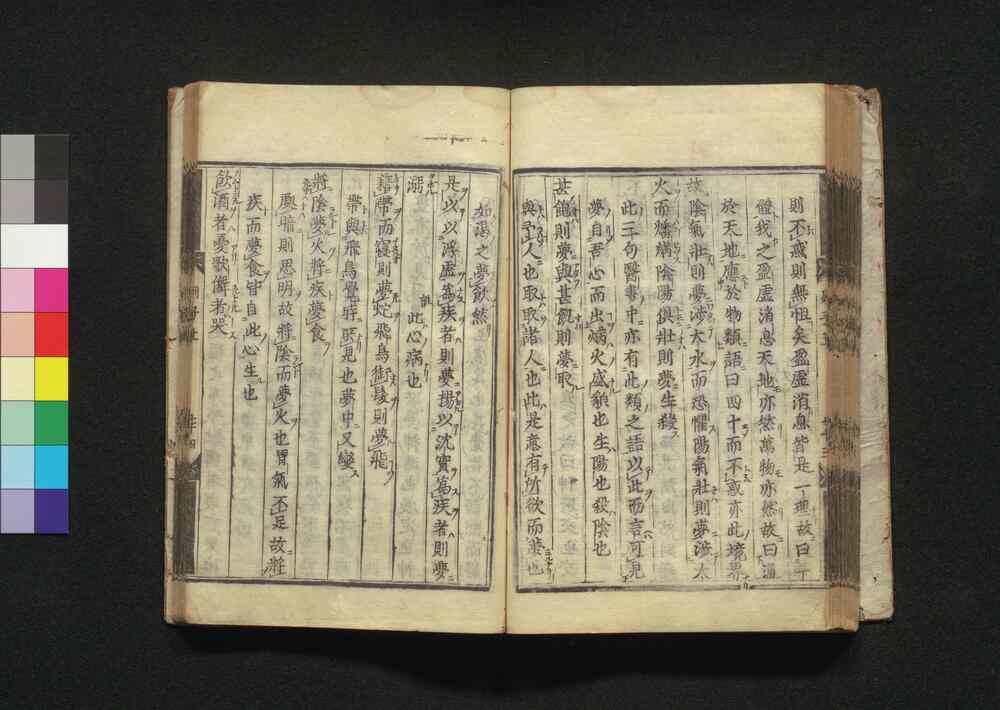 則不惑則無怛矣盈虛消息皆是一理故曰一
體我之盈虛消息天地亦然萬物亦然故曰通
於天地應於物類語曰四十而不惑亦此境界
故陰氣壯則夢涉大水而恐懼陽氣壯則夢涉大
火而燔焫陰陽俱壯則夢生殺
此三句醫書中亦有此類之語以此而言可見
夢自吾心而出燔火盛貌也生陽也殺陰也
甚飽則夢與甚飢則夢取
與與人也取取諸人也此是意有所欲而夢也
如渴之夢飲然
是以以浮虛為疾者則夢揚以沈實為疾者則夢
溺
此心病也
藉帶而寢則夢蛇飛鳥銜髮則夢飛
帶與飛鳥覺時所見也夢中又變
將陰夢火將疾夢食
天陰則思明故將陰而夢火也胃氣不足故將
疾而夢食皆自此心生也
飲酒者憂歌儛者哭